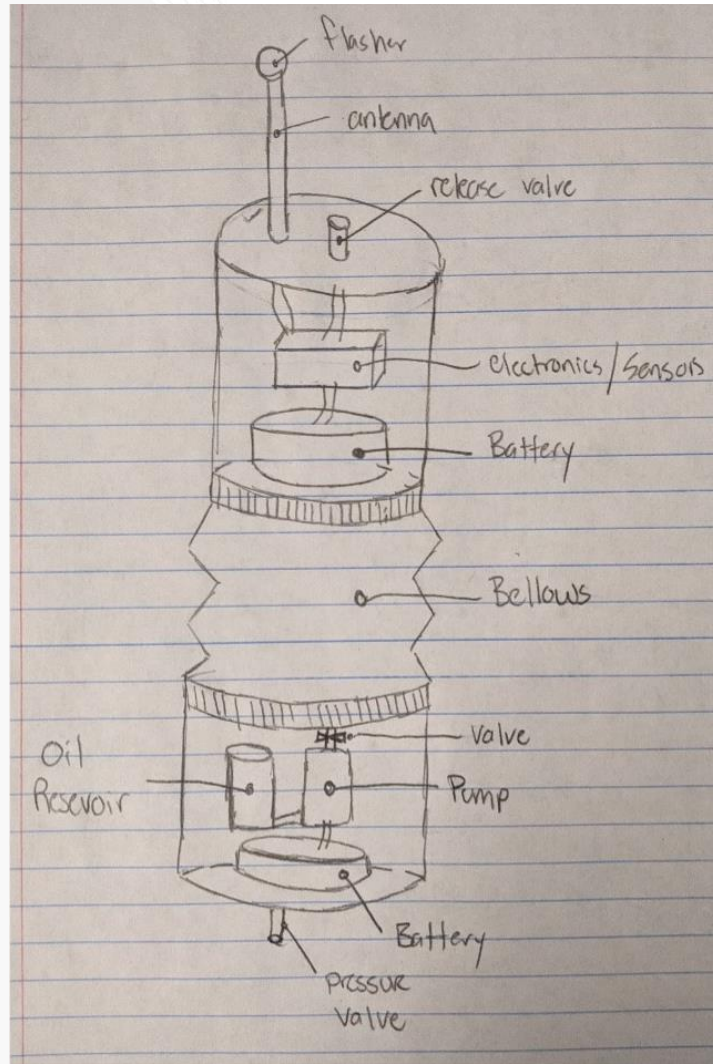 flasher
antenna
release valve
electronics/Sensors
Battery
Bellows
Valve
Oil
Resevoir
Pump
Battery
Pressur
Valve